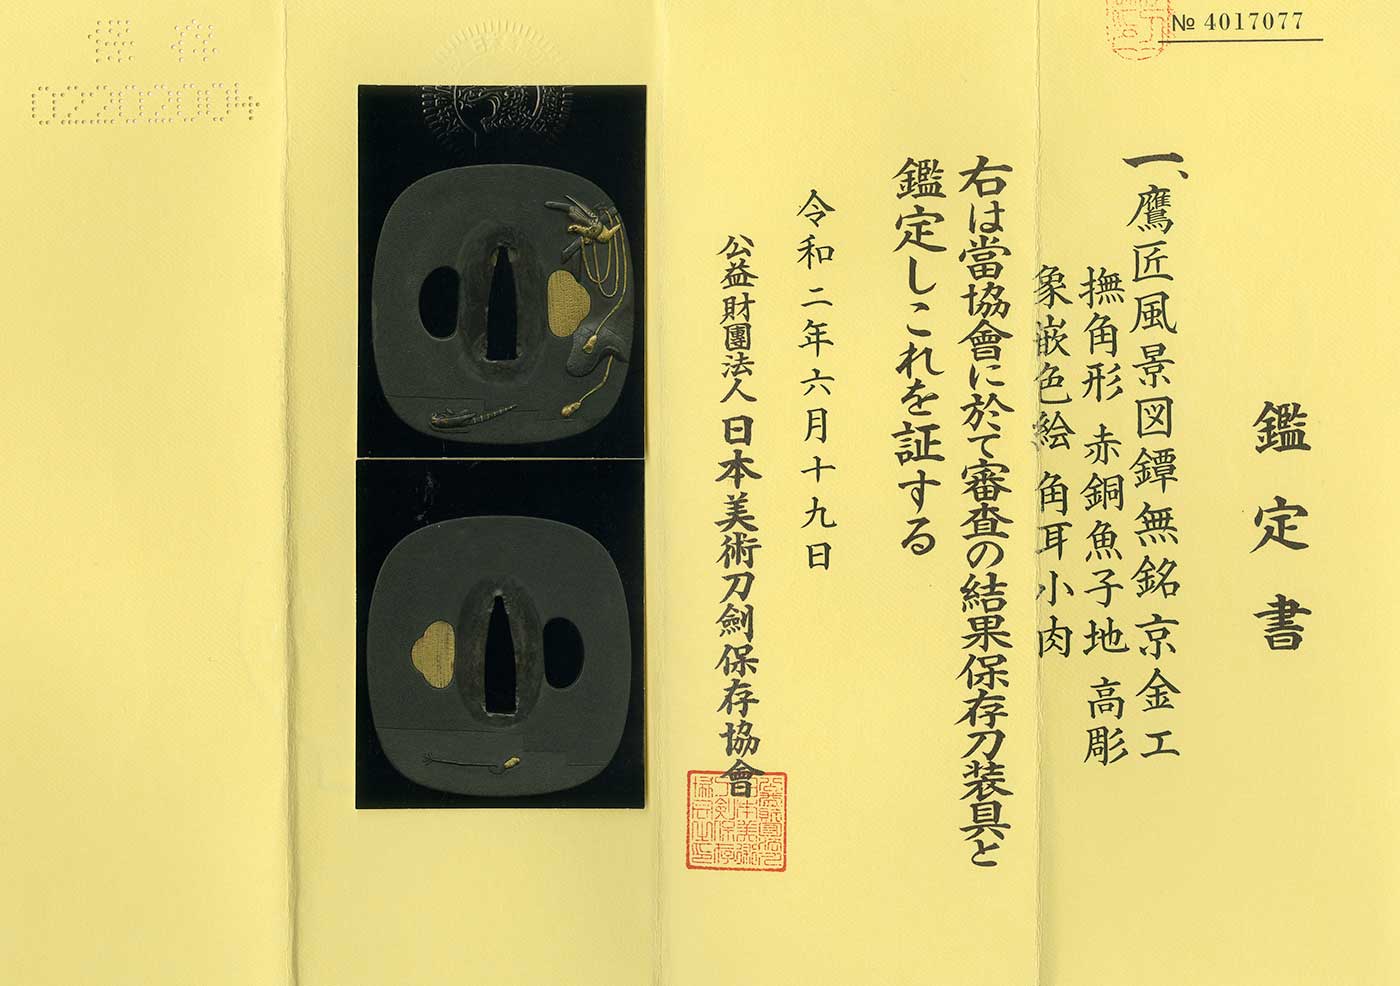 № 4017077
鑑定書
一、鷹匠風景図鐔 無銘 京金工
撫角形 赤銅魚子地 高彫
象嵌色絵 角耳小肉
右は當協會に於て審査の結果保存刀装具と
鑑定しこれを証する
令和二年六月十九日
公益財團法人 日本美術刀劍保存協會
保存
02202004